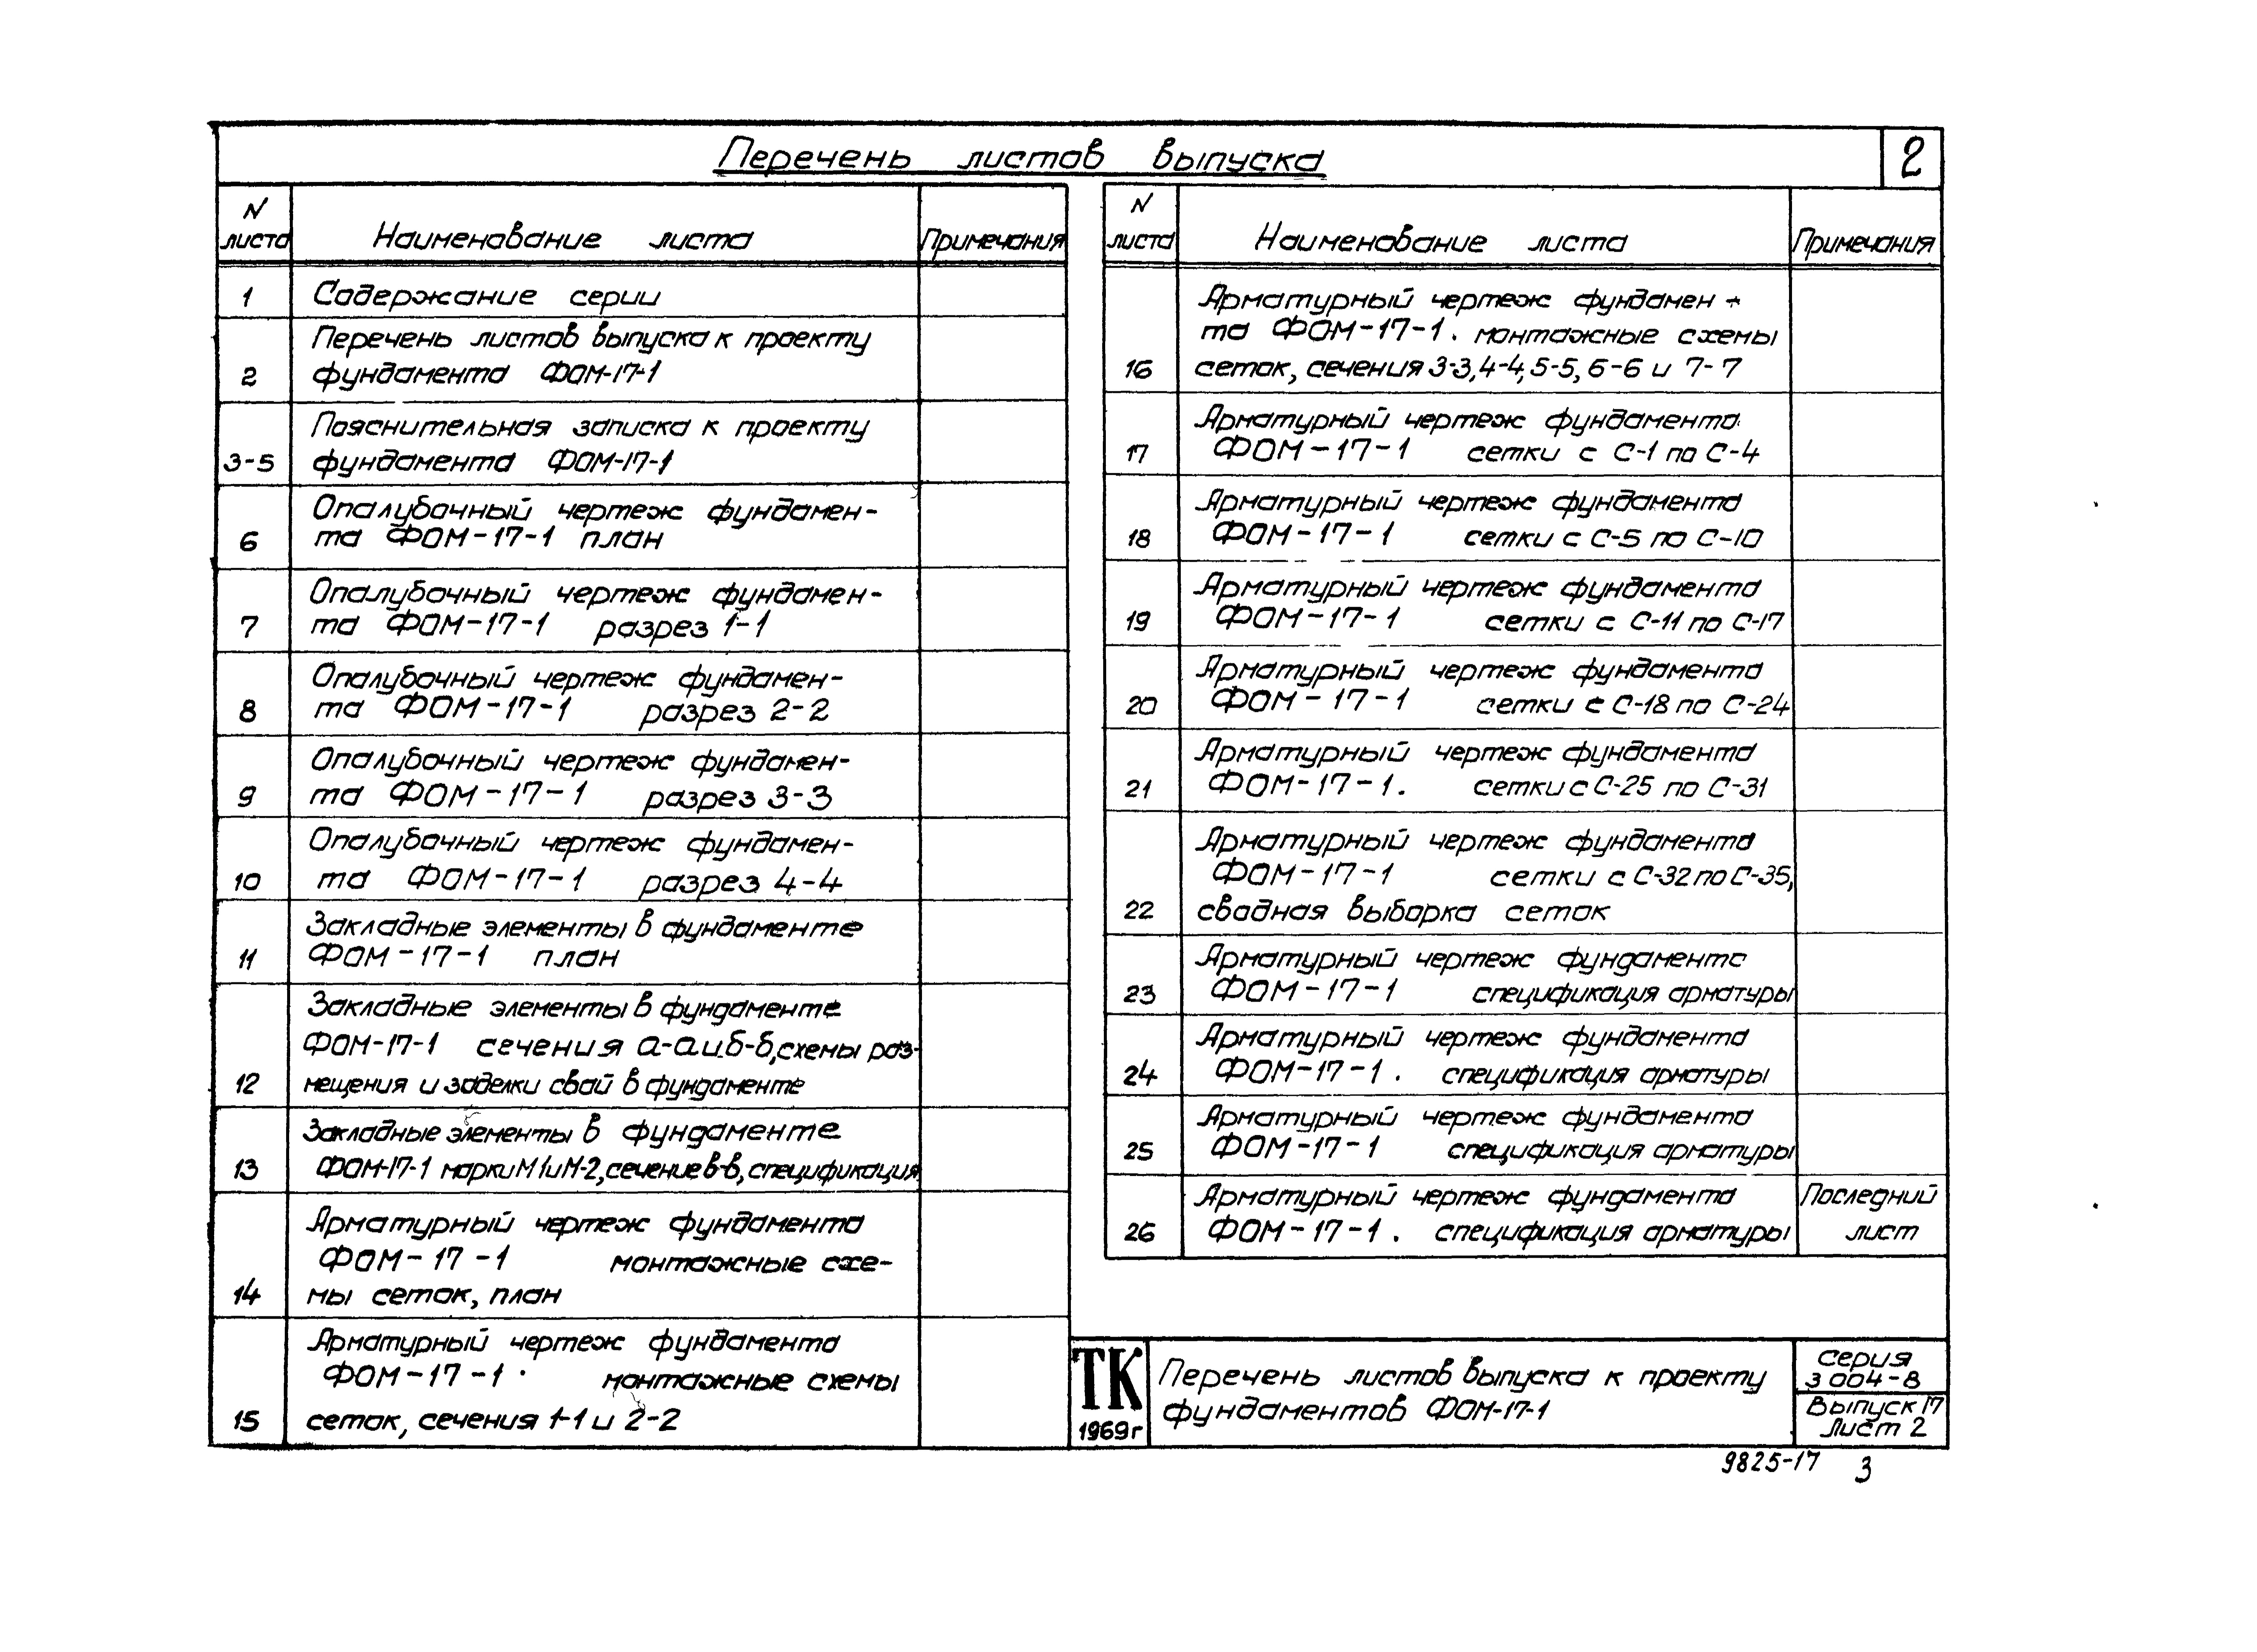 Перечень листов выпуска
2
N листа
Наименование листа
Примечания
1
Содержание серии
Перечень листов выпуска к проекту
2
фундамента ФОМ-17-1
Пояснительная записка к проекту
3-5
фундамента ФОМ-17-1
Опалубочный чертеж фундамен-
6
та ФОМ-17-1 план
Опалубочный чертеж фундамен-
7
та ФОМ-17-1 разрез 1-1
Опалубочный чертеж фундамен-
8
та ФОМ-17-1 разрез 2-2
Опалубочный чертеж фундамен-
9
та ФОМ-17-1 разрез 3-3
Опалубочный чертеж фундамен-
10
та ФОМ-17-1 разрез 4-4
Закладные элементы в фундаменте
11
ФОМ-17-1 план
Закладные элементы в фундаменте
ФОМ-17-1 сечения а-а и б-б, схемы раз-
12
мещения и заделки свай в фундаменте
Закладные элементы в фундаменте
13
ФОМ-17-1 марки М1 и М-2, сечение в-в, спецификация
Арматурный чертеж фундамента
ФОМ-17-1 монтажные схе-
14
мы сеток, план
Арматурный чертеж фундамента
ФОМ-17-1. монтажные схемы
15
сеток, сечения 1-1 и 2-2
N листа
Наименование листа
Примечания
Арматурный чертеж фундамен-
та ФОМ-17-1. монтажные схемы
16
сеток, сечения 3-3, 4-4, 5-5, 6-6 и 7-7
Арматурный чертеж фундамента
17
ФОМ-17-1 сетки с С-1 по С-4
Арматурный чертеж фундамента
18
ФОМ-17-1 сетки с С-5 по С-10
Арматурный чертеж фундамента
19
ФОМ-17-1 сетки с С-11 по С-17
Арматурный чертеж фундамента
20
ФОМ-17-1 сетки с С-18 по С-24
Арматурный чертеж фундамента
21
ФОМ-17-1. сетки с С-25 по С-31
Арматурный чертеж фундамента
ФОМ-17-1 сетки с С-32 по С-35,
22
сводная выборка сеток
Арматурный чертеж фундамента
23
ФОМ-17-1 спецификация арматуры
Арматурный чертеж фундамента
24
ФОМ-17-1. спецификация арматуры
Арматурный чертеж фундамента
25
ФОМ-17-1 спецификация арматуры
Арматурный чертеж фундамента
26
ФОМ-17-1. спецификация арматуры
Последний
лист
ТК
1969г
Перечень листов выпуска к проекту
фундаментов ФОМ-17-1
Серия
3 004-8
Выпуск 17
Лист 2
9825-17 3